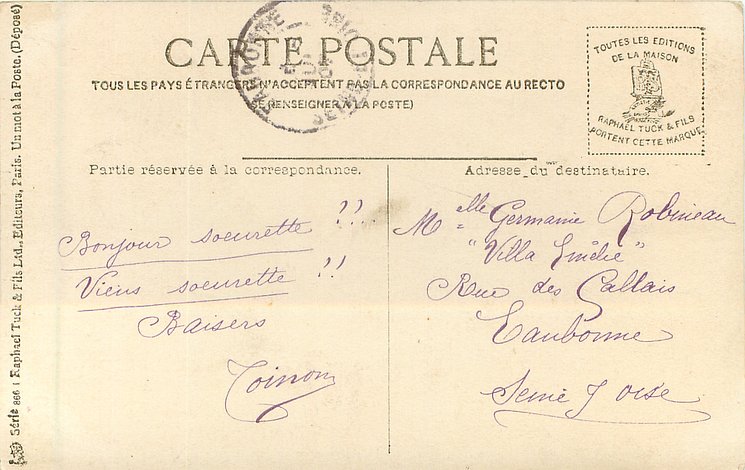 CARTE POSTALE
TOUS LES PAYS ÉTRANGERS N'ACCEPTENT PAS LA CORRESPONDANCE AU RECTO
(SE RENSEIGNER A LA POSTE)
TOUTES LES EDITIONS
DE LA MAISON
RAPHAEL TUCK & FILS
PORTENT CETTE MARQUE
Partie réservée à la correspondance.
Bonjour soeurette !!
Viens soeurette !!
Baisers
Toinon
Adresse du destinataire.
Melle Germanie Robineau
"Villa Emilie"
Rue des Callais
Eaubonne
Seine & oise
Série 866 Raphael Tuck & Fils Ltd., Editeurs, Paris. Un mot à la Poste. (Déposé)
EAUBONNE